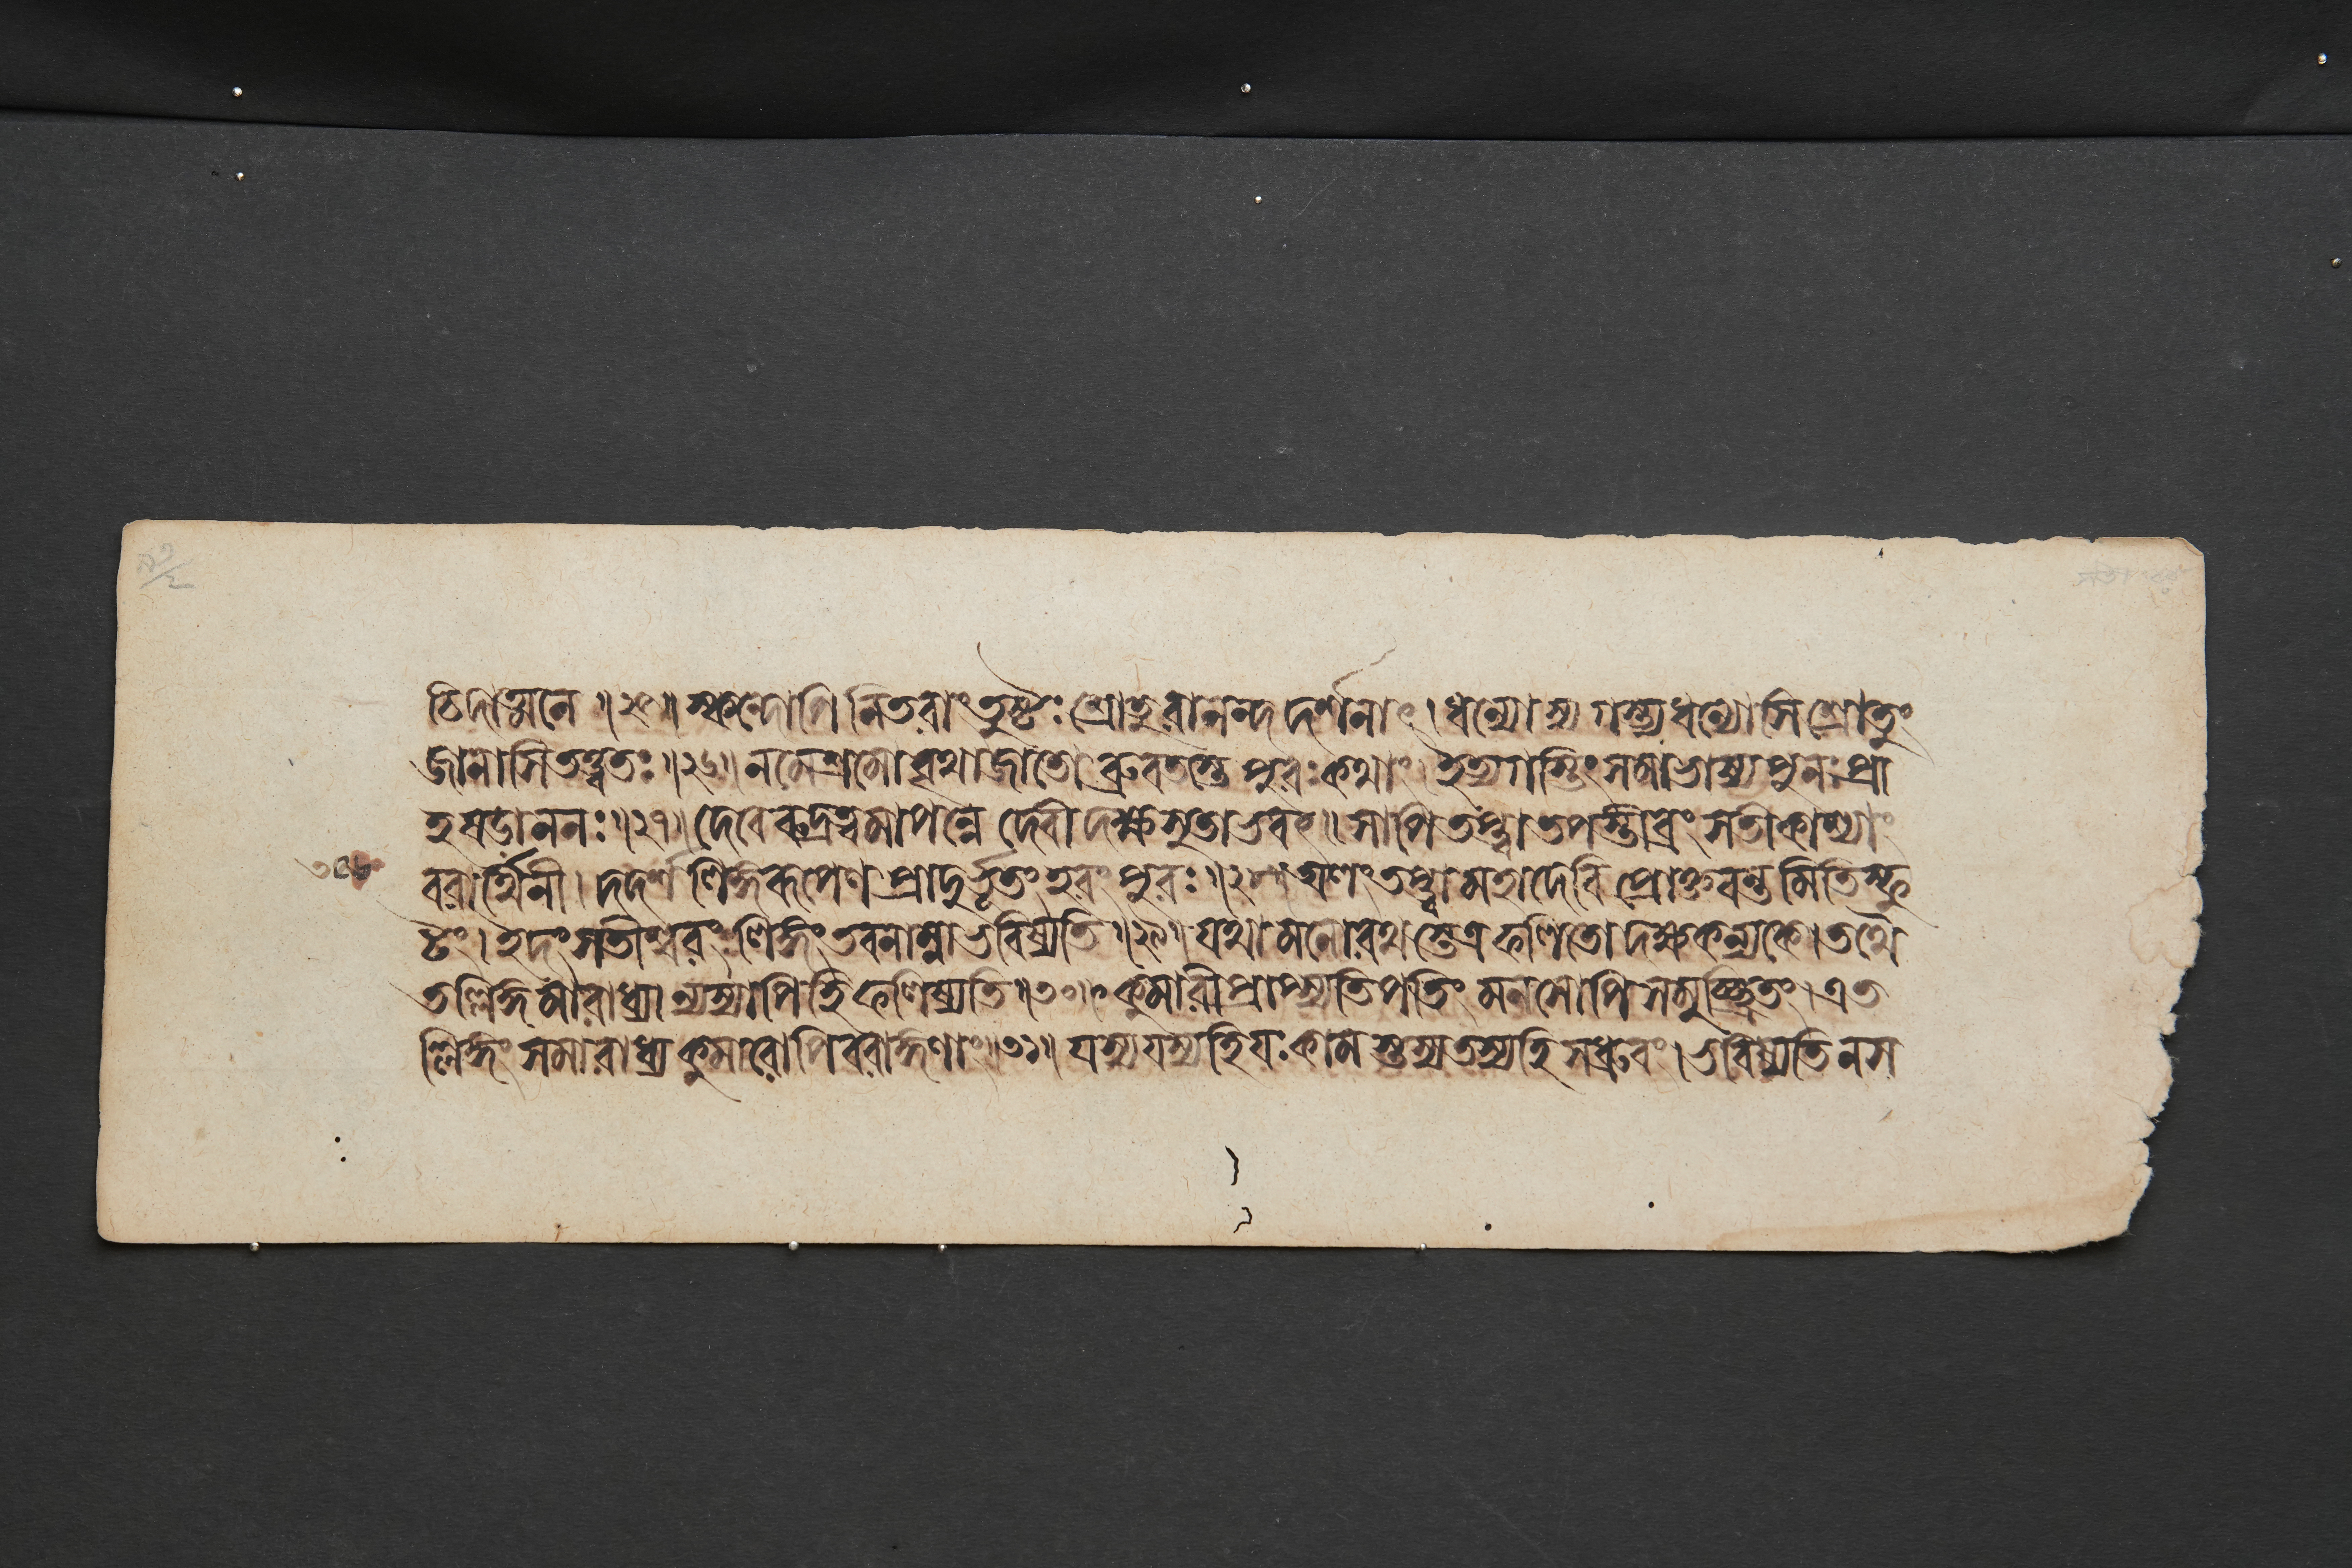 চিদাত্মনে ॥২৫॥ স্কন্দোপি নিতরাং তুষ্টঃ শ্রোতুরানন্দদর্শনাৎ । ধন্যোস্যগস্ত্য ধন্যোসি শ্রোতুং
জানাসি তত্ত্বতঃ ॥২৬॥ ন মে শ্রমো বৃথা জাতো ব্রুবতস্তে পুরঃ কথাং । ইত্যগস্তিং সমাভাষ্য পুনঃ প্রা
হ ষডাননঃ ॥২৭॥ দেবে রুদ্রত্বমাপন্নে দেবী দক্ষসুতাভবৎ ॥ সাপি তপ্ত্বা তপস্তীব্রং সতী কাশ্যাং
বরার্থিনী । দদর্শ লিঙ্গরূপেণ প্রাদুর্ভূতং হরং পুরঃ ॥২৮॥ অলং তপ্ত্বা মহাদেবি প্রোক্তবন্তমিতি স্ফু
টং । ইদং সতীশ্বরং লিঙ্গং তব নাম্না ভবিষ্যতি ॥২৯॥ যথা মনোরথস্তেত্র ফলিতো দক্ষকন্যকে । তথৈ
তল্লিঙ্গমারাধ্যান্যস্যাপি হি ফলিষ্যতি ॥৩০॥ কুমারী প্রাপ্স্যতি পতিং মনসোপি সমুচ্ছ্রিতং । এত
ল্লিঙ্গং সমারাধ্য কুমারোপি বরাঙ্গণাং ॥৩১॥ যস্য যস্য হি যঃ কামস্তস্য তস্য হি স ধ্রুবং । ভবিষ্যতি ন স